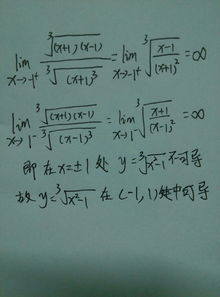 lim_{x→-1⁺} ∛((x+1)(x-1)) / ∛((x+1)³) = lim_{x→-1⁺} ∛((x-1)/(x+1)²) = ∞
lim_{x→1⁻} ∛((x+1)(x-1)) / ∛((x-1)³) = lim_{x→1⁻} ∛((x+1)/(x-1)²) = ∞
即在x=±1处 y=∛(x²-1) 不可导
故y=∛(x²-1) 在(-1,1)处中可导